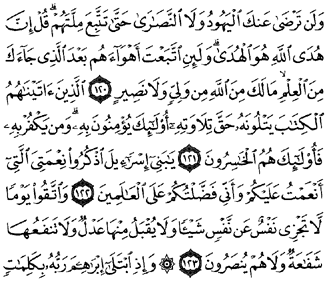 وَلَن تَرْضَىٰ عَنكَ ٱلْيَهُودُ وَلَا ٱلنَّصَـٰرَىٰ حَتَّىٰ تَتَّبِعَ مِلَّتَهُمْ ۗ قُلْ إِنَّ
هُدَى ٱللَّهِ هُوَ ٱلْهُدَىٰ ۗ وَلَئِنِ ٱتَّبَعْتَ أَهْوَآءَهُم بَعْدَ ٱلَّذِى جَآءَكَ
مِنَ ٱلْعِلْمِ ۙ مَا لَكَ مِنَ ٱللَّهِ مِن وَلِىٍّ وَلَا نَصِيرٍ ١٢٠ ٱلَّذِينَ ءَاتَيْنَـٰهُمُ
ٱلْكِتَـٰبَ يَتْلُونَهُۥ حَقَّ تِلَاوَتِهِۦٓ أُو۟لَـٰٓئِكَ يُؤْمِنُونَ بِهِۦ ۗ وَمَن يَكْفُرْ بِهِۦ
فَأُو۟لَـٰٓئِكَ هُمُ ٱلْخَـٰسِرُونَ ١٢١ يَـٰبَنِىٓ إِسْرَٰٓءِيلَ ٱذْكُرُوا۟ نِعْمَتِىَ ٱلَّتِىٓ
أَنْعَمْتُ عَلَيْكُمْ وَأَنِّى فَضَّلْتُكُمْ عَلَى ٱلْعَـٰلَمِينَ ١٢٢ وَٱتَّقُوا۟ يَوْمًا
لَّا تَجْزِى نَفْسٌ عَن نَّفْسٍ شَيْـًٔا وَلَا يُقْبَلُ مِنْهَا عَدْلٌ وَلَا تَنفَعُهَا
شَفَـٰعَةٌ وَلَا هُمْ يُنصَرُونَ ١٢٣ ۞ وَإِذِ ٱبْتَلَىٰٓ إِبْرَٰهِـۧمَ رَبُّهُۥ بِكَلِمَـٰتٍ